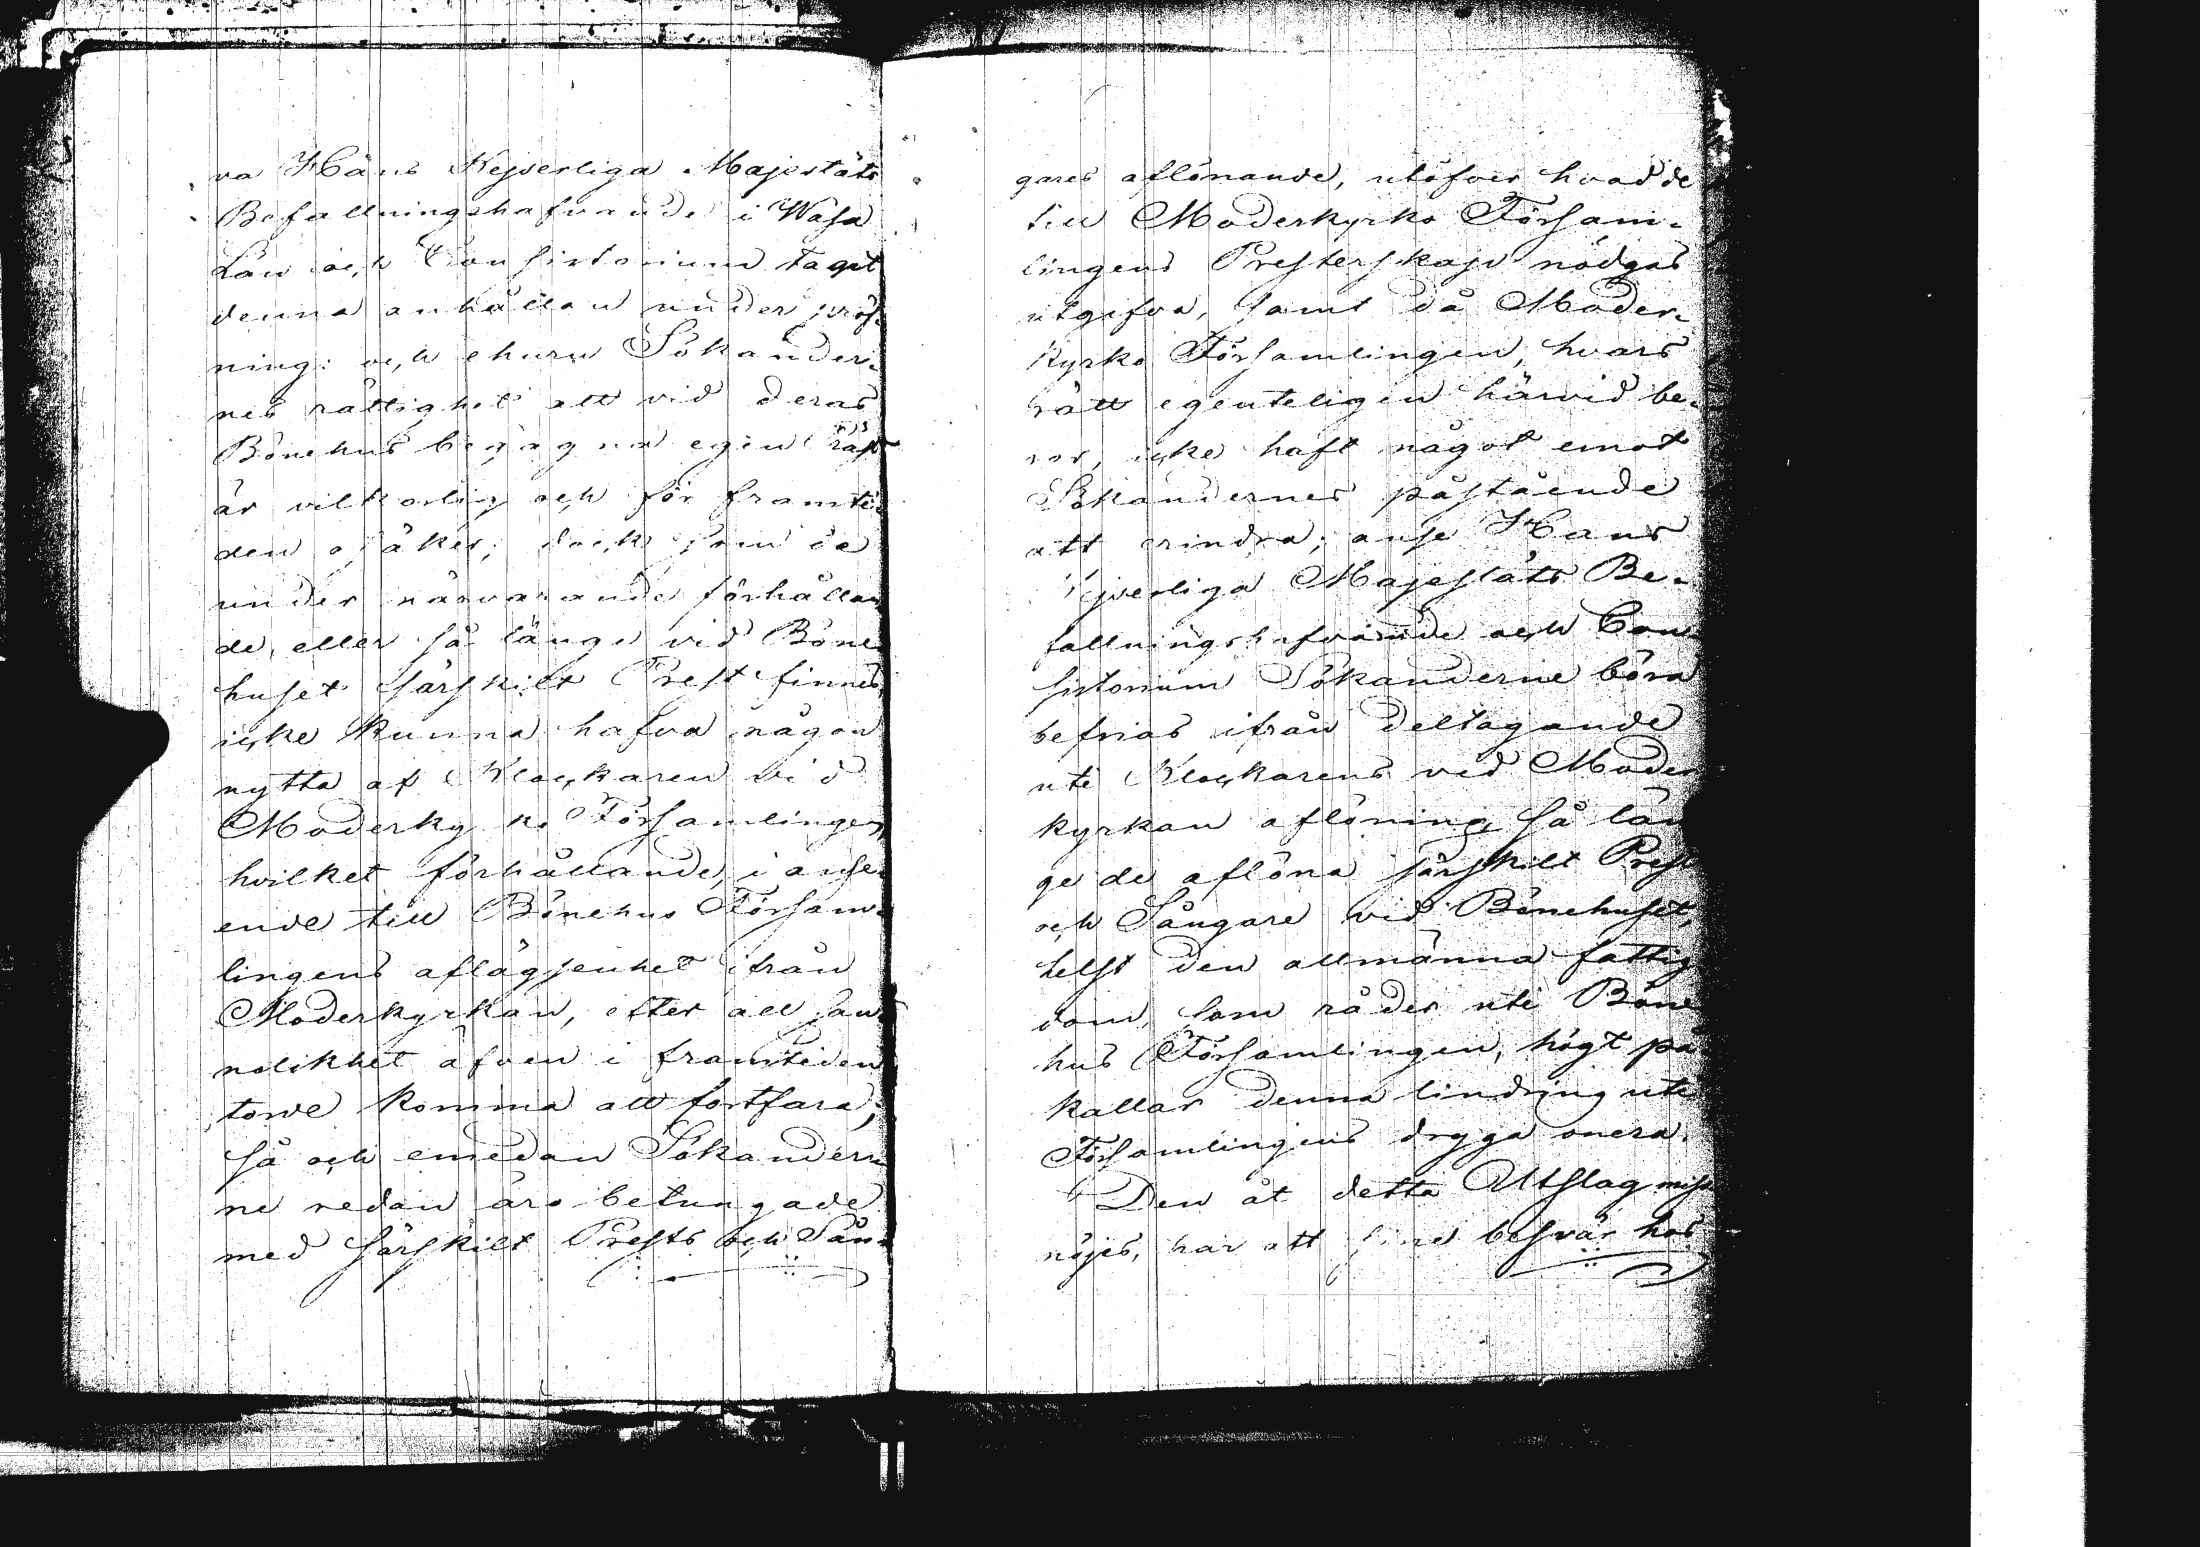 va Hans Kejserliga Majestäts
Befallningshafvande i Wasa
Län och Consistorium tagit
denna anhållan under pröf-
ning: och ehuru Sökander-
nes rättighet att vid deras
Bönehus begagna egen
är vilkorlig och för framti-
den osäker; dock som de
under närvarande förhållan
de, eller så länge vid Böne
huset särskilt Prest finnes
icke kunna hafva någon
nytta af Klockaren vid
Moderkyrko Församlingen,
hvilket förhållande, i anse-
ende till Bönehus Försam-
lingens aflägsenhet ifrån
Moderkyrkan, efter all san-
nolikhet äfven i framtiden
torde komma att fortfara;
så och emedan Sökander-
ne redan äro betungade
med särskilt Prests och Sån-
gares aflönande, utöfver hvad de
till Moderkyrko Försam-
lingens Presterskap nödgas
utgifva, samt då Moder-
kyrko Församlingen, hvars
rätt egenteligen härvid be-
ror, icke haft något emot
Sökandernes påstående
att erindra; anse Hans
Kejserliga Majestäts Be-
fallningshafvande och Con-
sistorium Sökanderne böra
befrias ifrån deltagande
uti Klockarens vid Moder
kyrkan aflöning så län
ge de aflöna särskilt Prest
och Sångare vid Bönehuset,
helst den allmänna fattig
dom, som råder uti Böne
hus Församlingen, högt på
kallar denna lindring uti
Församlingens dryga onera.
Den åt detta Utslag miss
nöjes, har att sine besvär hos